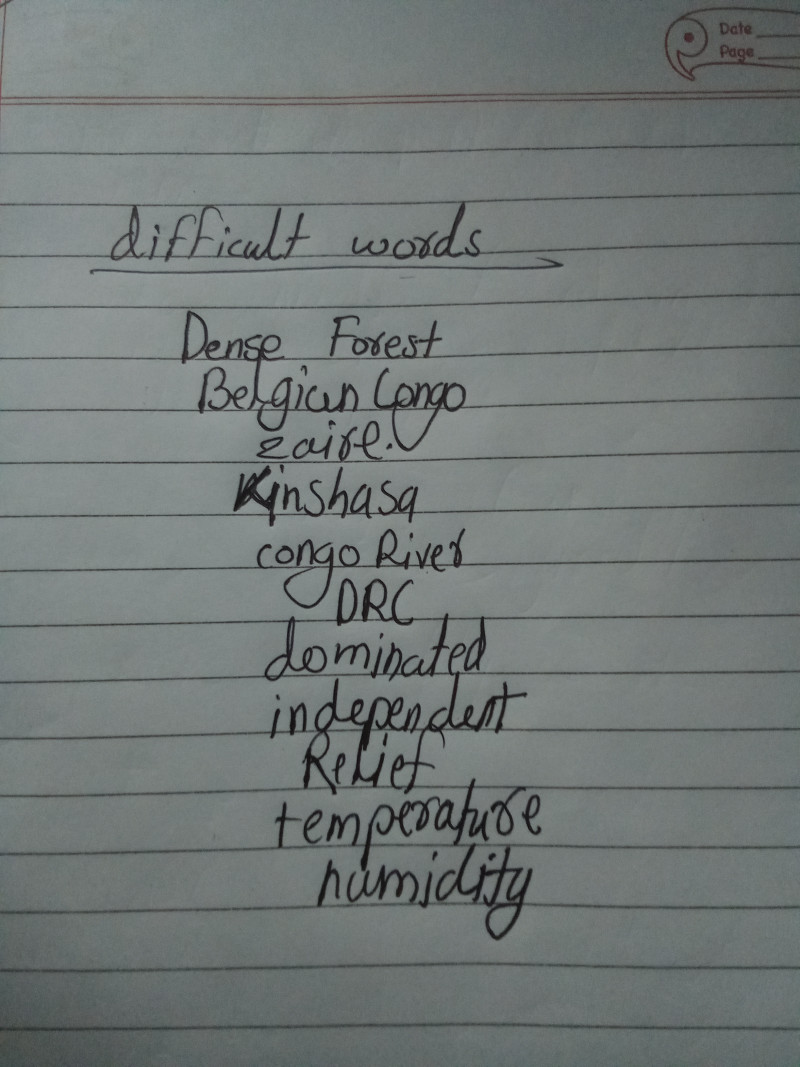 Date
Page
difficult words
Dense Forest
Belgian Congo
zaire.
Kinshasa
congo River
DRC
dominated
independent
Relief
temperature
humidity